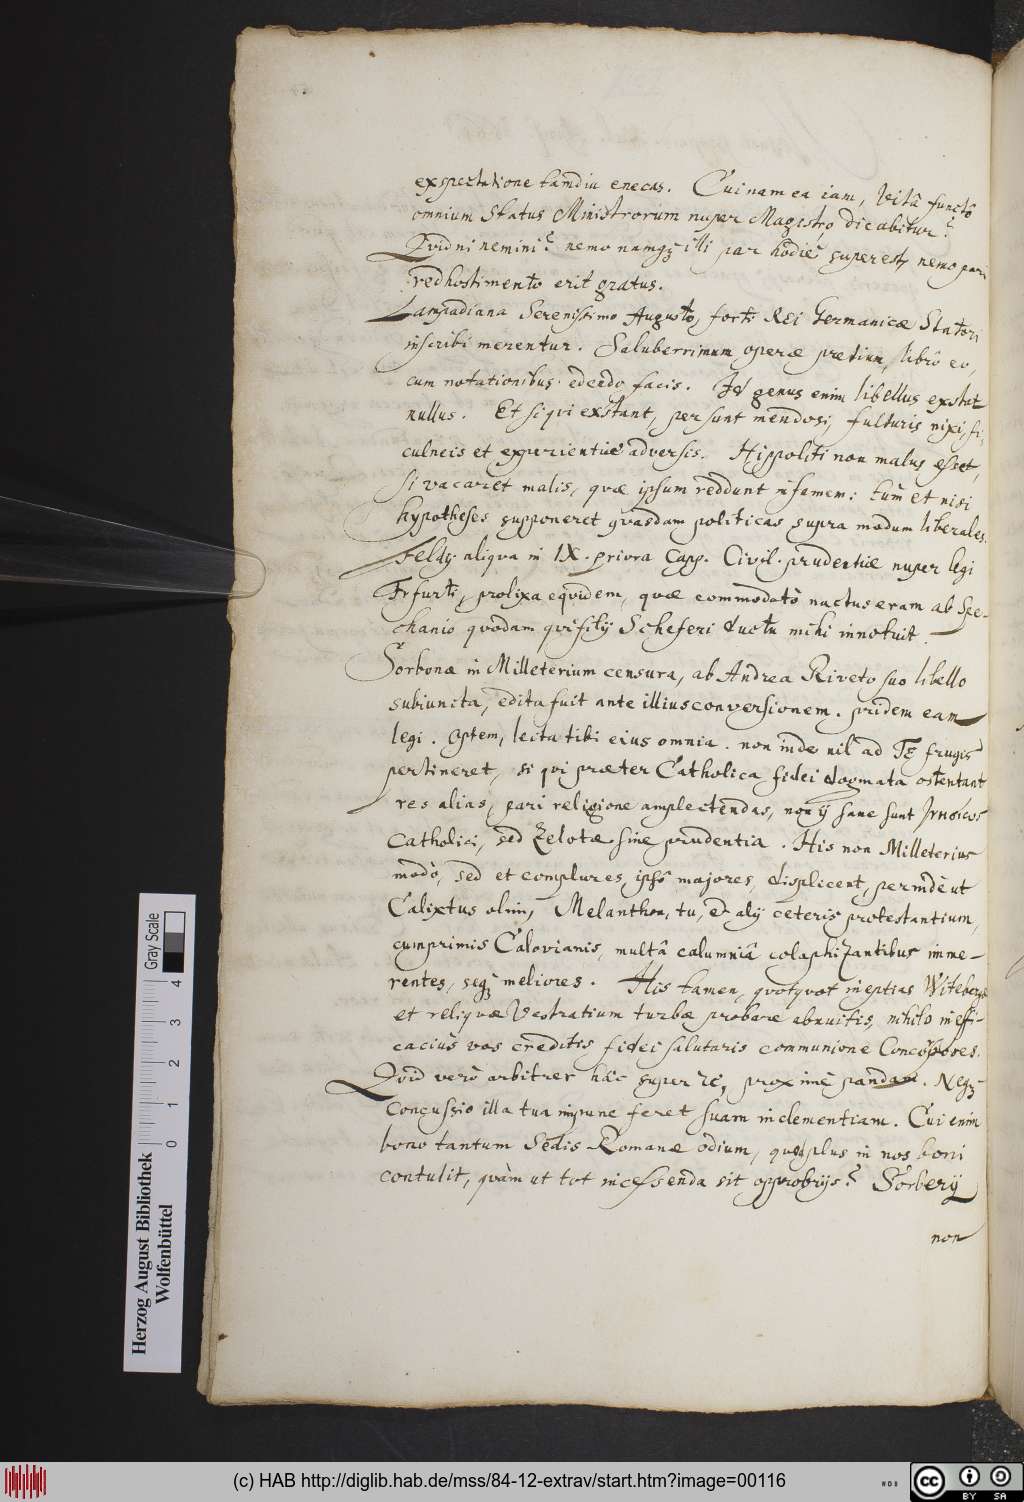 exspectatione tamdiu enecas. Cuinam ea iam, vitâ functô
omnium Status Ministrorum nuper Magistro, dicabitur?
Qvidni nemini? nemo namq; illi par hodiè superest, nemo pari
redhostimento erit gratus.
Lampadiana Serenissimo Augusto, forti Rei Germanicæ Statori
inscribi merentur. Saluberrimum operæ pretium, librô eo,
cum notationibus edendo facis. Id genus enim libellus exstat
nullus. Et si qvi exstant, persunt mendosi, fulturis nixi fi-
culneis et experientiæ adversis. Hippoliti non malus esset,
si vacaret malis, quæ ipsum reddunt infamem: tùm et nisi
hypotheses supponeret quasdam politicas supra modum liberales.
Feldij aliqva in IX. priora Capp. Civil. prudentiæ nuper legi
Erfurti, prolixa eqvidem, quæ commodatò nactus eram ab Spe-
chanio quodam qvi filij Scheferi ductu mihi innotuit.
Sorbonæ in Milleterium censura, ab Andrea Riveto suo libello
subiuncta, edita fuit ante illius conversionem. pridem eam
legi. Optem, lecta tibi eius omnia. non inde nil ad Te frugis
pertineret, si qvi præter Catholica fidei dogmata ostentant
res alias, pari religione amplectendas, non ij sane sunt
Catholici, sed Zelotæ sine prudentia. His non Milleterius
modò, sed et complures ipsô majores, displicent, perinde ut
Calixtus olim, Melanthon, tu, & alij ceteris protestantium,
cumprimis Calovianis, multâ calumniâ colaphizantibus imme-
rentes, seq; meliores. His tamen, quotquot ineptias Witeberge
et reliqvæ Vestratium turbæ probare abnuitis, nihilo ineffi-
caciùs vos creditis fidei salutaris communione
Qvid verò arbitrer hâc super re, proximè pandam. Neq;
Concussio illa tua impune feret suam inclementiam. Cui enim
bono tantum Sedis Romanæ odium, quæ plus in nos boni
contulit, qvàm ut tot incessenda sit opprobrijs? Sorberij
non
Herzog August Bibliothek
Wolfenbüttel
0 1 2 3 4
Gray Scale
(c) HAB http://diglib.hab.de/mss/84-12-extrav/start.htm?image=00116
cc BY SA